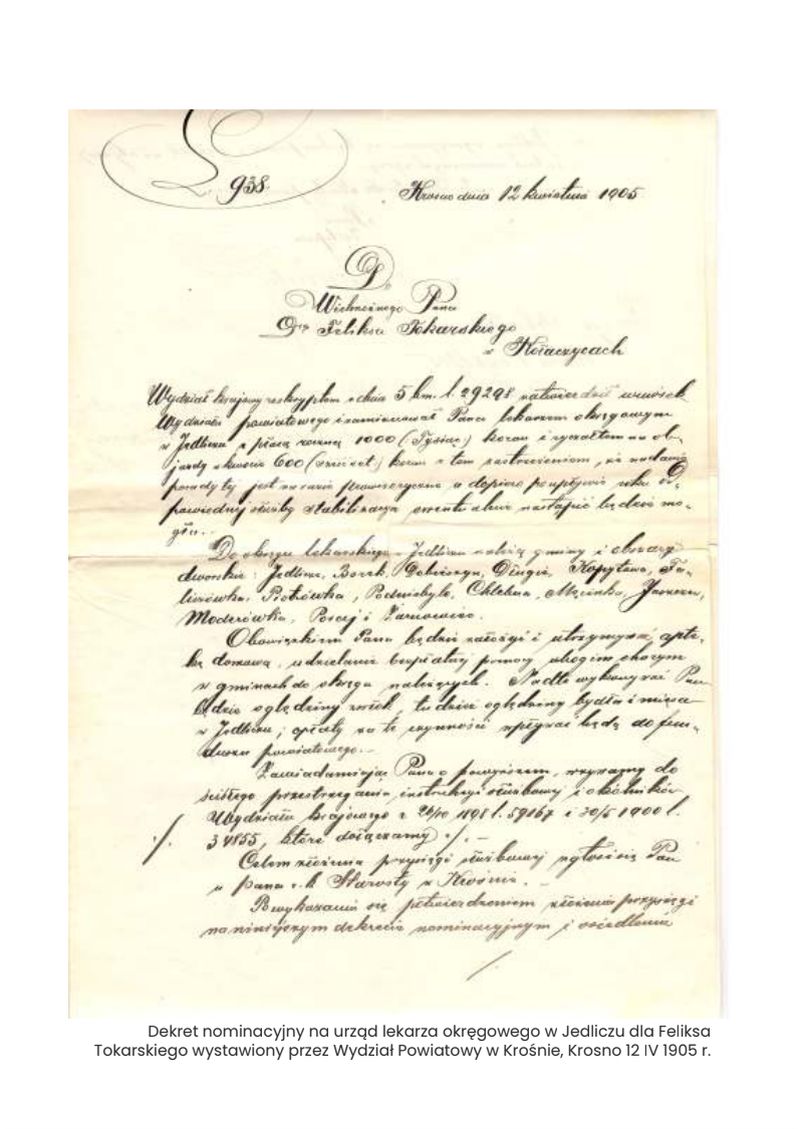 L. 938.
Krosno dnia 12 kwietnia 1905
D.
Wielmożnego Pana
Dra Feliksa Tokarskiego
w Kołaczycach
Wydział krajowy reskryptem z dnia 5 bm. l. 29298 zatwierdził wniosek
Wydziału powiatowego i zamianował Pana lekarzem okręgowym
w Jedliczu z płacą roczną 1000 (Tysiąc) koron i ryczałtem na ob-
jazdy w kwocie 600 (sześćset) koron z tem zastrzeżeniem, że nadanie
posady tej jest na razie prowizoryczne a dopiero po upływie roku od-
powiedniej służby stabilizacya ewentualnie nastąpić będzie mo-
gła.
Do okręgu lekarskiego w Jedliczu należą gminy i obszary
dworskie: Jedlicze, Borek, Dobieszyn, Długie, Kopytowa, Ża-
Piotrówka, Podniebyle, Chlebna, Męcinka, Jaszczew,
Moderówka, Poraj i Żarnowiec.
Obowiązkiem Pana będzie założyć i utrzymywać apte-
kę domową, udzielanie bezpłatnej pomocy ubogim chorym
w gminach do okręgu należących. Nadto wykonywać Pan
będzie oględziny zwłok, tudzież oględziny bydła i mięsa
w Jedliczu; opłaty za te czynności wpływać będą do fun-
duszu powiatowego.-
Zawiadamiając Pana o powyższem, wzywamy do
ścisłego przestrzegania instrukcyi służbowej i okólników
Wydziału krajowego z 26/10 1898 l. 59167 i 30/5 1900 l.
34855, które dołączamy ./. -
./.
Celem złożenia przysięgi służbowej zgłosi się Pan
u pana c.k. Starosty w Krośnie. -
Po wykazaniu się potwierdzeniem złożenia przysięgi
na niniejszym dekrecie nominacyjnym i osiedlenia
./.
Dekret nominacyjny na urząd lekarza okręgowego w Jedliczu dla Feliksa
Tokarskiego wystawiony przez Wydział Powiatowy w Krośnie, Krosno 12 IV 1905 r.